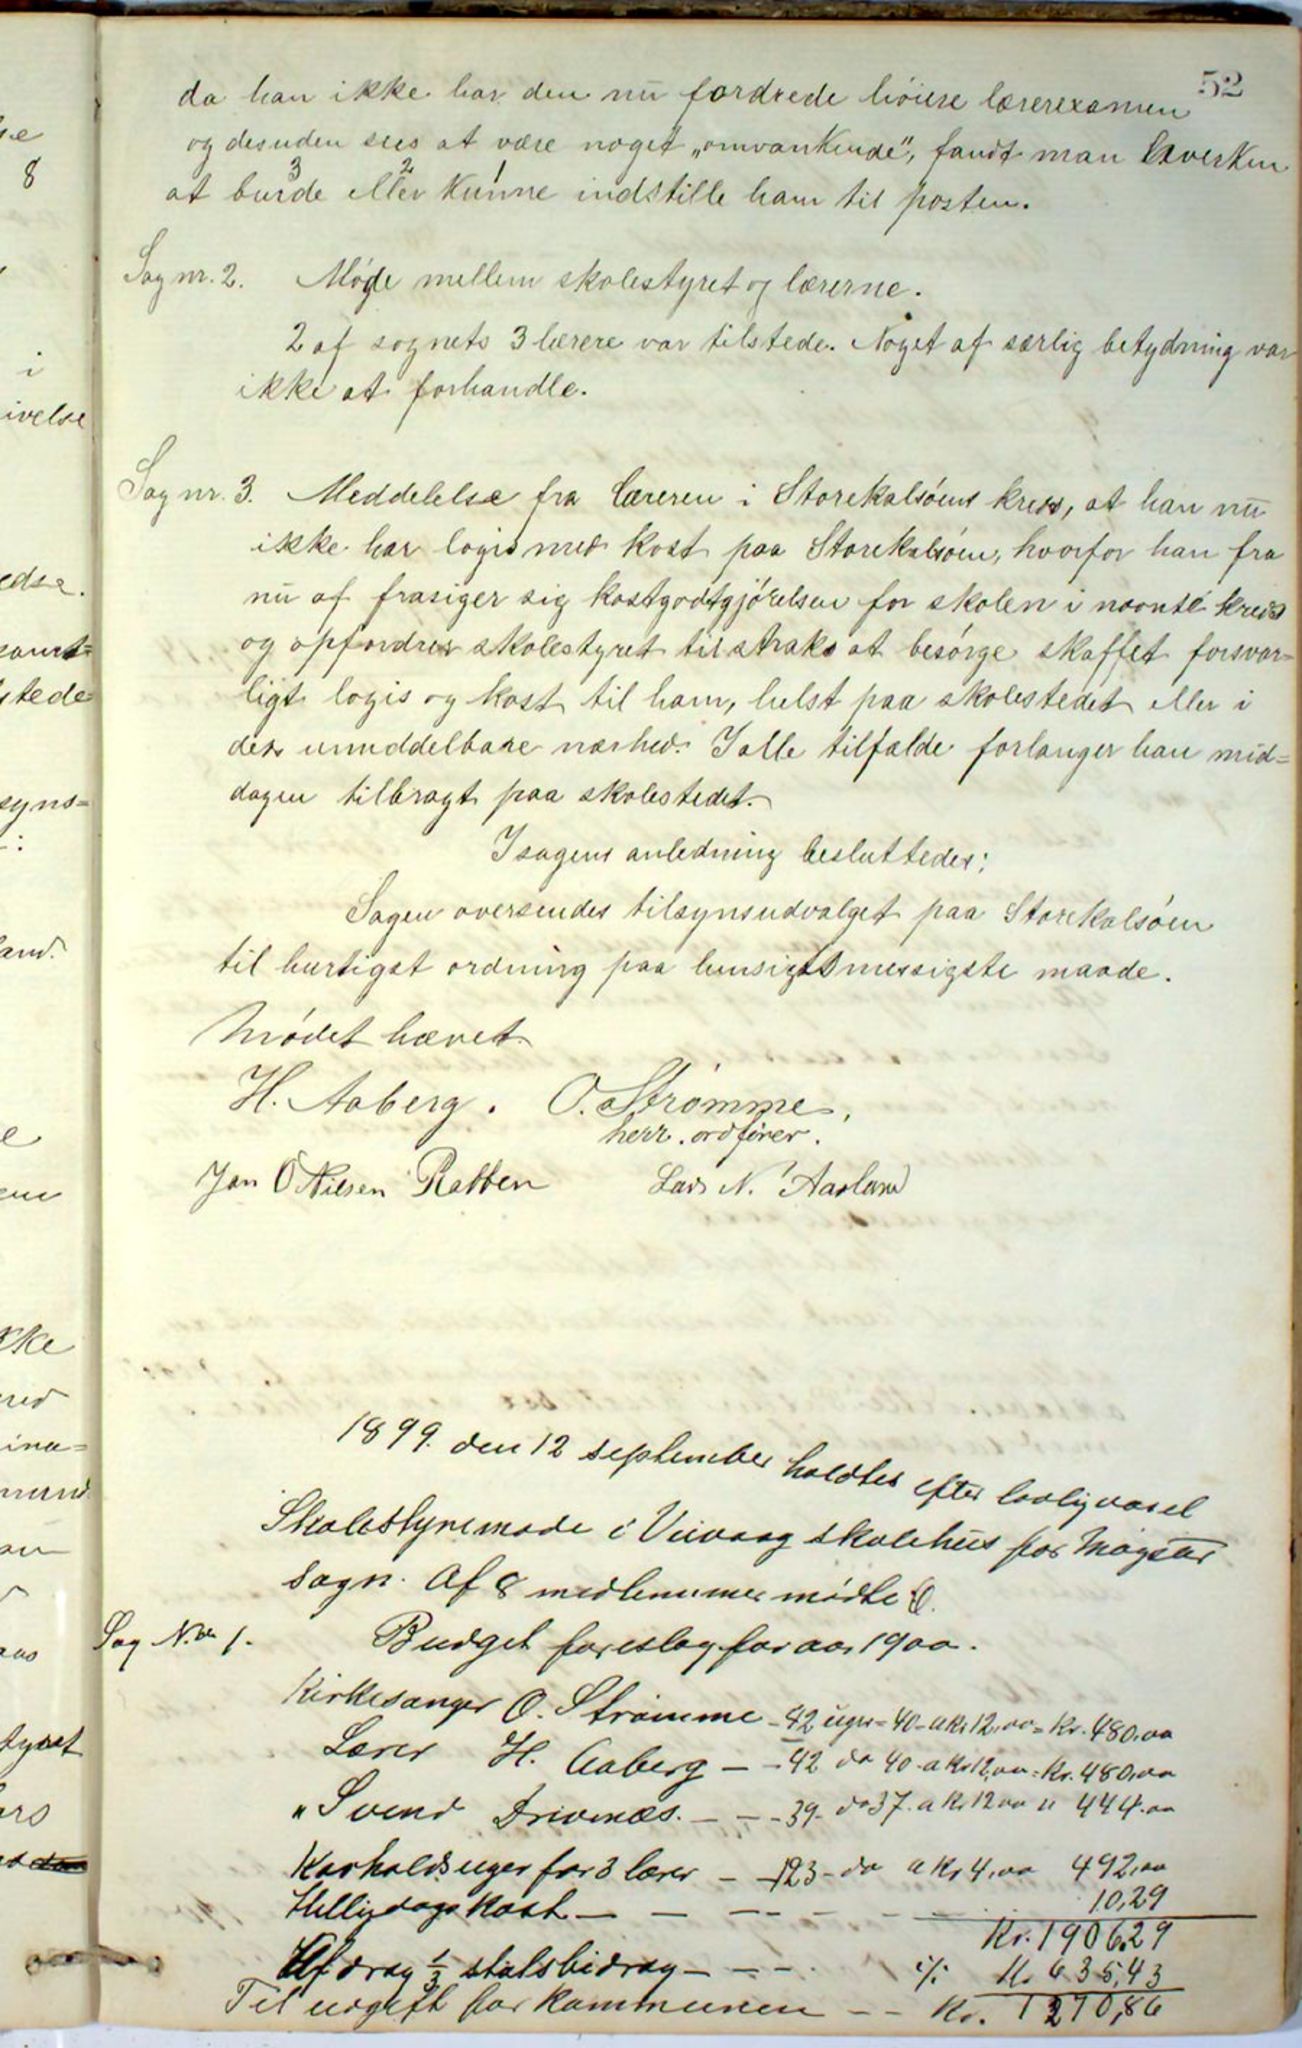 52
da han ikke har den nu fordrede höiere lærerexamen
og desuden sees at være noget „omvankende", fandt man hverken
at burde eller kunne indstille ham til posten.
3 2 1
Sag nr. 2. Møde mellem skolestyret og lærerne.
2 af sognets 3 lærere var tilstede. Noget af særlig betydning var
ikke at forhandle.
Sag nr. 3. Meddelelse fra læreren i Storekalsöens kreds, at han nu
ikke har logis med kost paa Storekalsöen, hvorfor han fra
nu af frasiger sig kostgodtgjörelsen for skolen i nævnte kreds
og opfordrer skolestyret til straks at besörge skaffet forsvar=
ligt logis og kost til ham, helst paa skolestedet eller i
dets umiddelbare nærhed. I alle tilfælde forlanger han mid=
dagen tilbragt paa skolestedet.
I sagens anledning besluttedes:
Sagen oversendes tilsynsudvalget paa Storekalsöen
til hurtigst ordning paa hensigtsmessigste maade.
Mödet hævet.
H. Aaberg. O. Strømme,
herr. ordfører.
Jan O Nilsen Rabben Lars N. Aarland
1899. den 12 september holdtes efter lovlig varsel
Skolestyremøde i Viivaag skolehus for Møgster
Sogn. Af 8 medlemmer mödte
Sag N.o 1. Budget foreslag for aar 1900.
Kirkesanger O. Strømme - 42 uger = 40 - a Kr 12,00 = Kr. 480,00
Lærer H. Aaberg - - 42 do 40 - a Kr 12,00 = Kr. 480,00
" Svend Drivenæs. - - - 39 - do 37. a Kr 12 00 " 444.00
Kosholdsuger for 3 lærer - - 123 - do a Kr 4,00 492,00
Helligdags kost - - - - - - 10,29
Kr. 1906,29
Afdrag 1/3 statsbidrag - - - ·/· Kr. 635,43
Til udgift for kommunen - - Kr. 1270,86